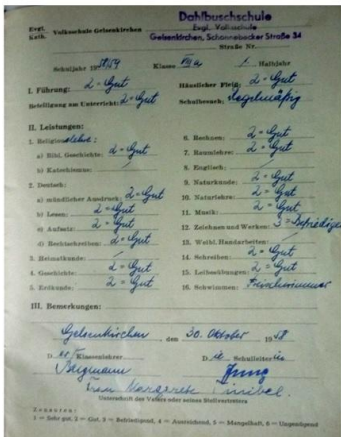 Dahlbuschschule
Evgl. Volksschule
Gelsenkirchen, Schonnebecker Straße 34
Evgl. Kath. Volksschule Gelsenkirchen
Straße Nr.
Schuljahr 1958/59 Klasse VIIIa 1. Halbjahr
I. Führung: 2 = Gut Häuslicher Fleiß: 2 = Gut
Beteiligung am Unterricht: 2 = Gut Schulbesuch: Regelmäßig
II. Leistungen:
1. Religionslehre:
a) Bibl. Geschichte: 2 = Gut
b) Katechismus: /
2. Deutsch:
a) mündlicher Ausdruck: 2 = Gut
b) Lesen: 2 = Gut
c) Aufsatz: 2 = Gut
d) Rechtschreiben: 2 = Gut
3. Heimatkunde: /
4. Geschichte: 2 = Gut
5. Erdkunde: 2 = Gut
6. Rechnen: 2 = Gut
7. Raumlehre: 2 = Gut
8. Englisch: /
9. Naturkunde: 2 = Gut
10. Naturlehre: 2 = Gut
11. Musik: 2 = Gut
12. Zeichnen und Werken: 3 = Befriedigend
13. Weibl. Handarbeiten: /
14. Schreiben: 2 = Gut
15. Leibesübungen: 2 = Gut
16. Schwimmen: Freischwimmer
III. Bemerkungen:
Gelsenkirchen den 30. Oktober 1958
D er Klassenlehrer D ie Schulleiterin
Frau Margarete
Unterschrift des Vaters oder seines Stellvertreters
Zensuren:
1 = Sehr gut, 2 = Gut, 3 = Befriedigend, 4 = Ausreichend, 5 = Mangelhaft, 6 = Ungenügend